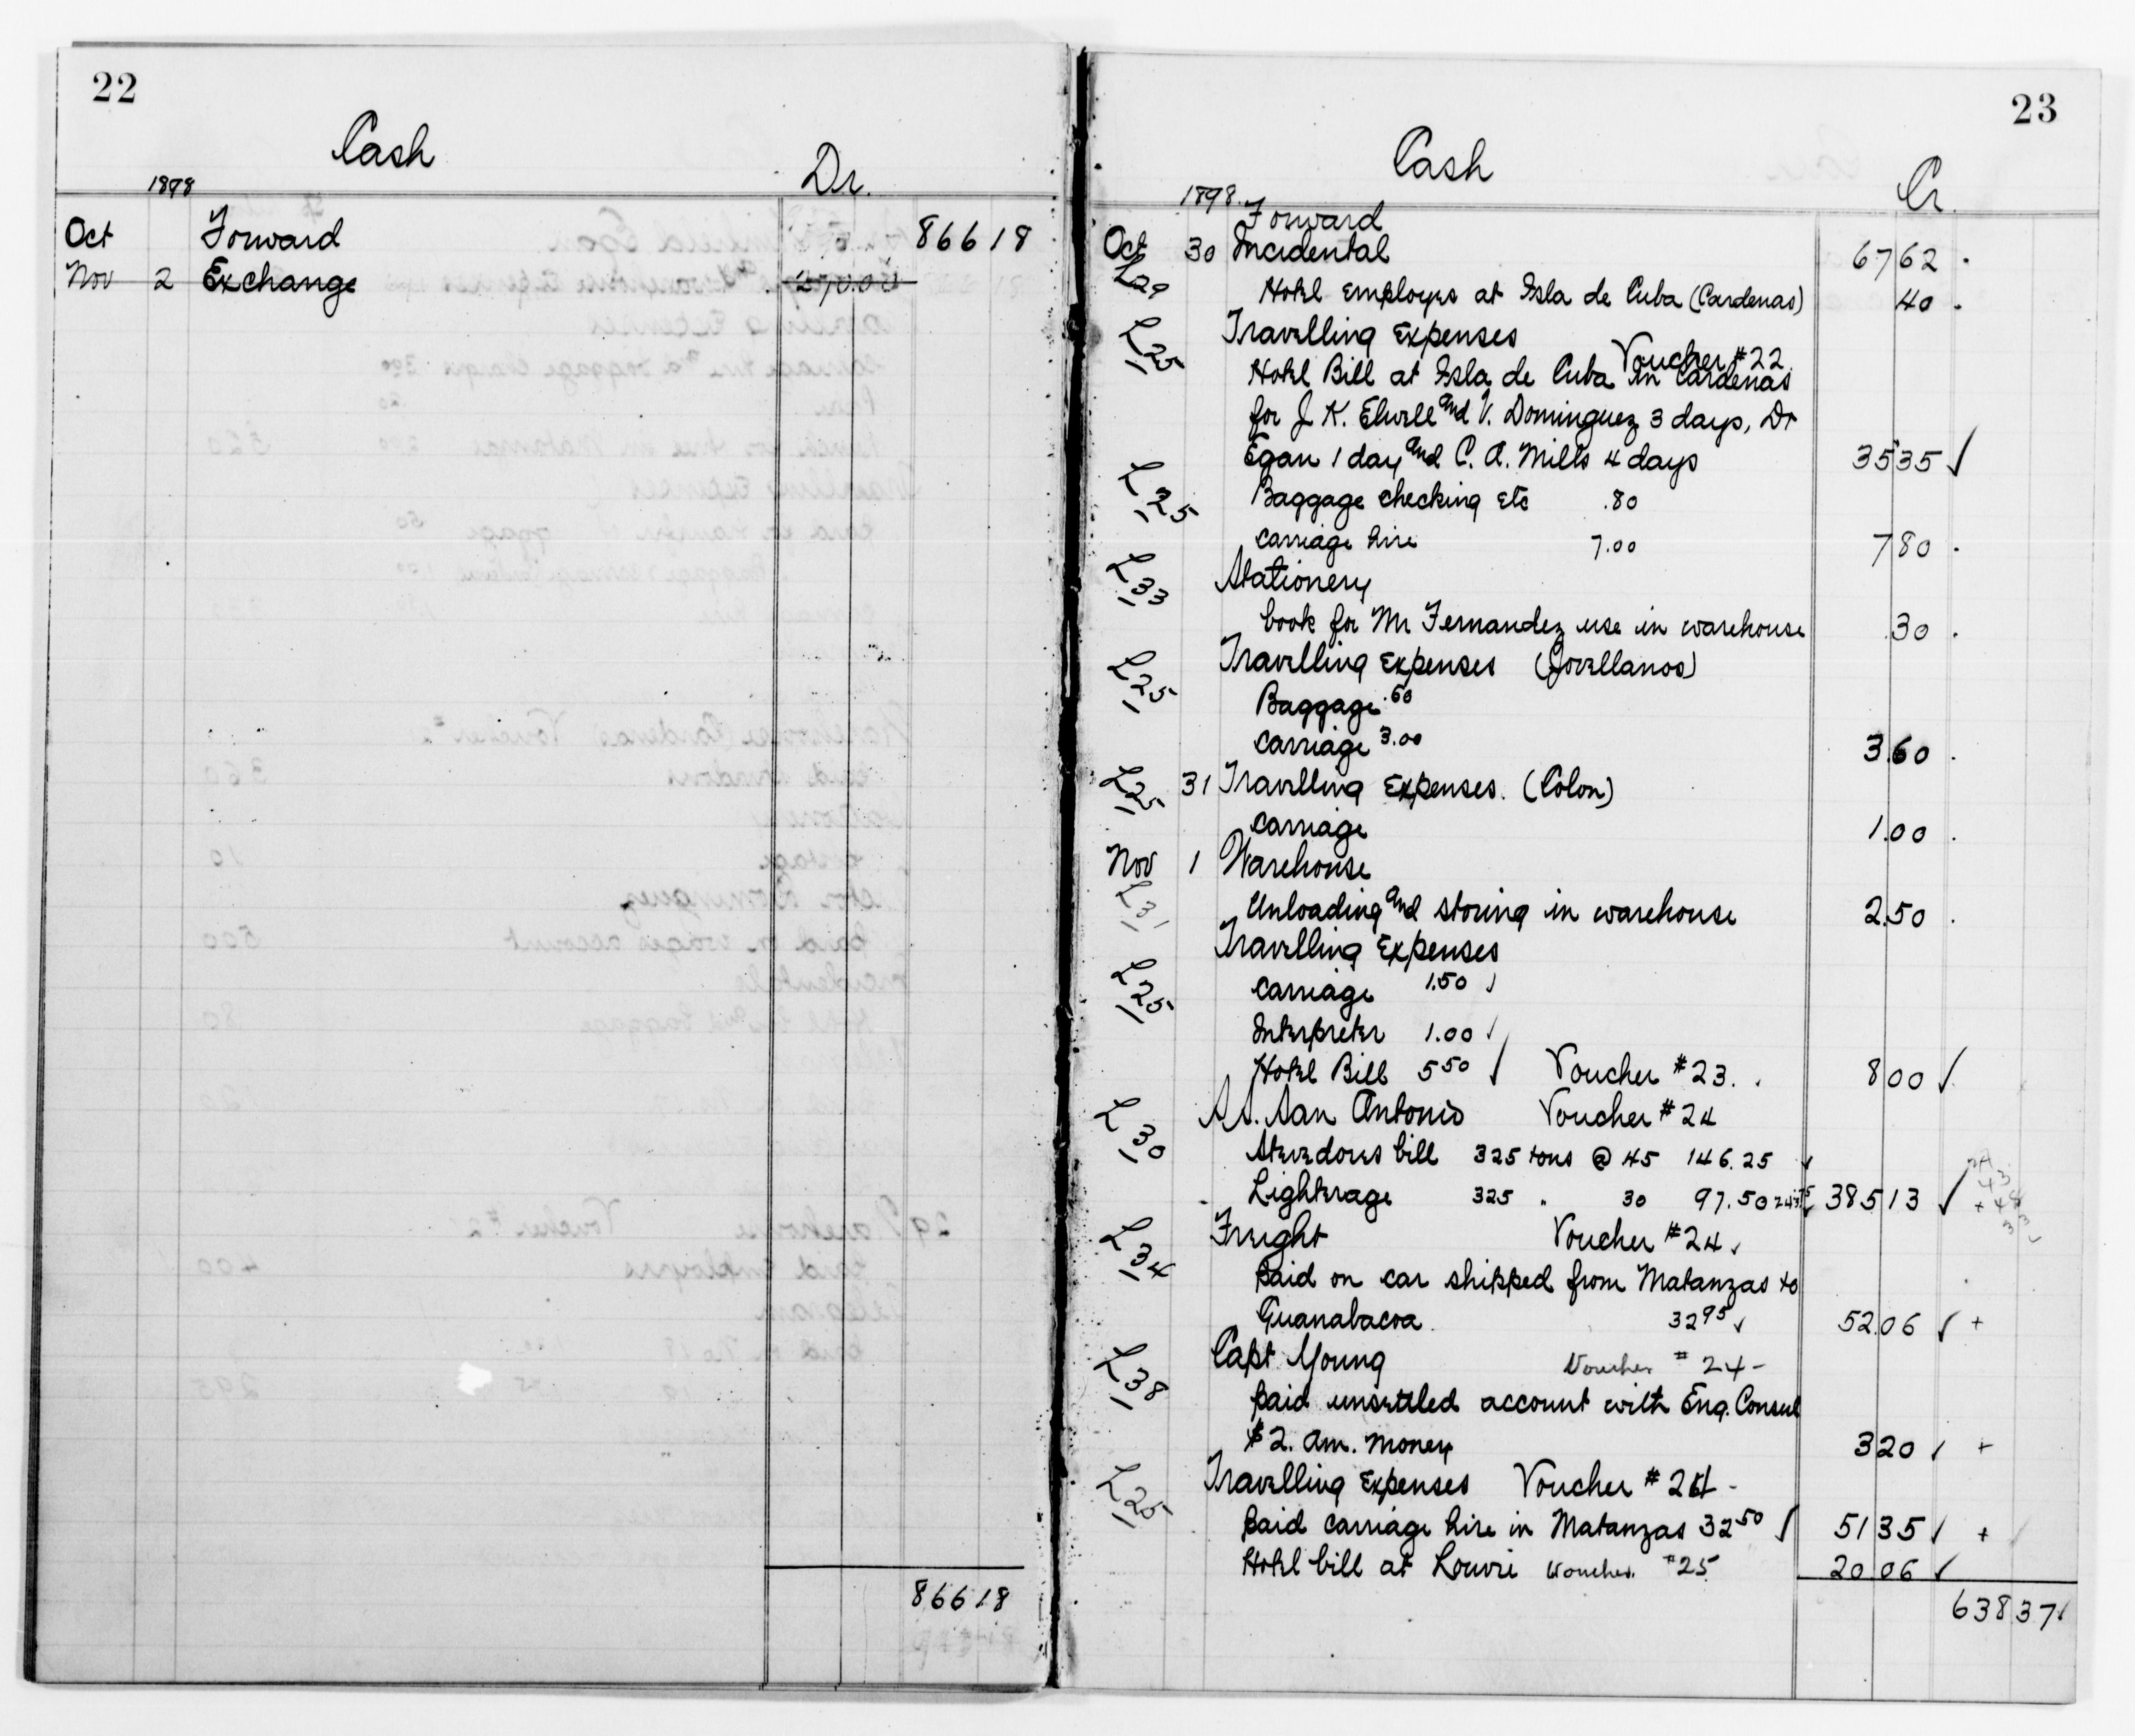 22
Cash
1898
Dr.
Oct Forward 866 18
Nov 2 Exchange 270.00
866 18
23
Cash
1898.
Cr.
Forward 67 62
Oct 30 Incidental
L29 Hotel employes at Isla de Cuba (Cardenas) 40
L25 Travelling Expenses Voucher #22
Hotel Bill at Isla de Cuba in Cardenas
for J. K. Elwell and V. Dominguez 3 days, Dr
Egan 1 day and C. A. Mills 4 days 35 35 ✓
L25 Baggage checking etc .80
carriage hire 7.00 7 80
L33 Stationery
book for Mr Fernandez use in warehouse .30
L25 Travelling Expenses (Jovellanos)
Baggage .60
carriage 3.00 3.60
L25 31 Travelling Expenses. (Colon)
carriage 1.00
Nov 1 Warehouse
L31 Unloading and storing in warehouse 2.50
Travelling Expenses
L25 carriage 1.50 ✓
Interpreter 1.00 ✓
Hotel Bill 5 50 ✓ Voucher #23. 8 00 ✓
L30 S.S. San Antonio Voucher #24
Stevedores bill 325 tons @ 45 146.25 ✓
Lighterage 325 " 30 97.50 243 75 385 13 ✓
L34 Freight Voucher #24 ✓
Paid on car shipped from Matanzas to
Guanabacoa 32 95 ✓ 52.06 ✓ +
L38 Capt Young Voucher #24 -
paid unsettled account with Eng. Consul
$2. Am. money 3 20 ✓ +
L25 Travelling Expenses Voucher #24 -
Paid carriage hire in Matanzas 32 50 ✓ 51 35 ✓ +
Hotel bill at Louvre Voucher #25 20 06 ✓
638 37 ✓